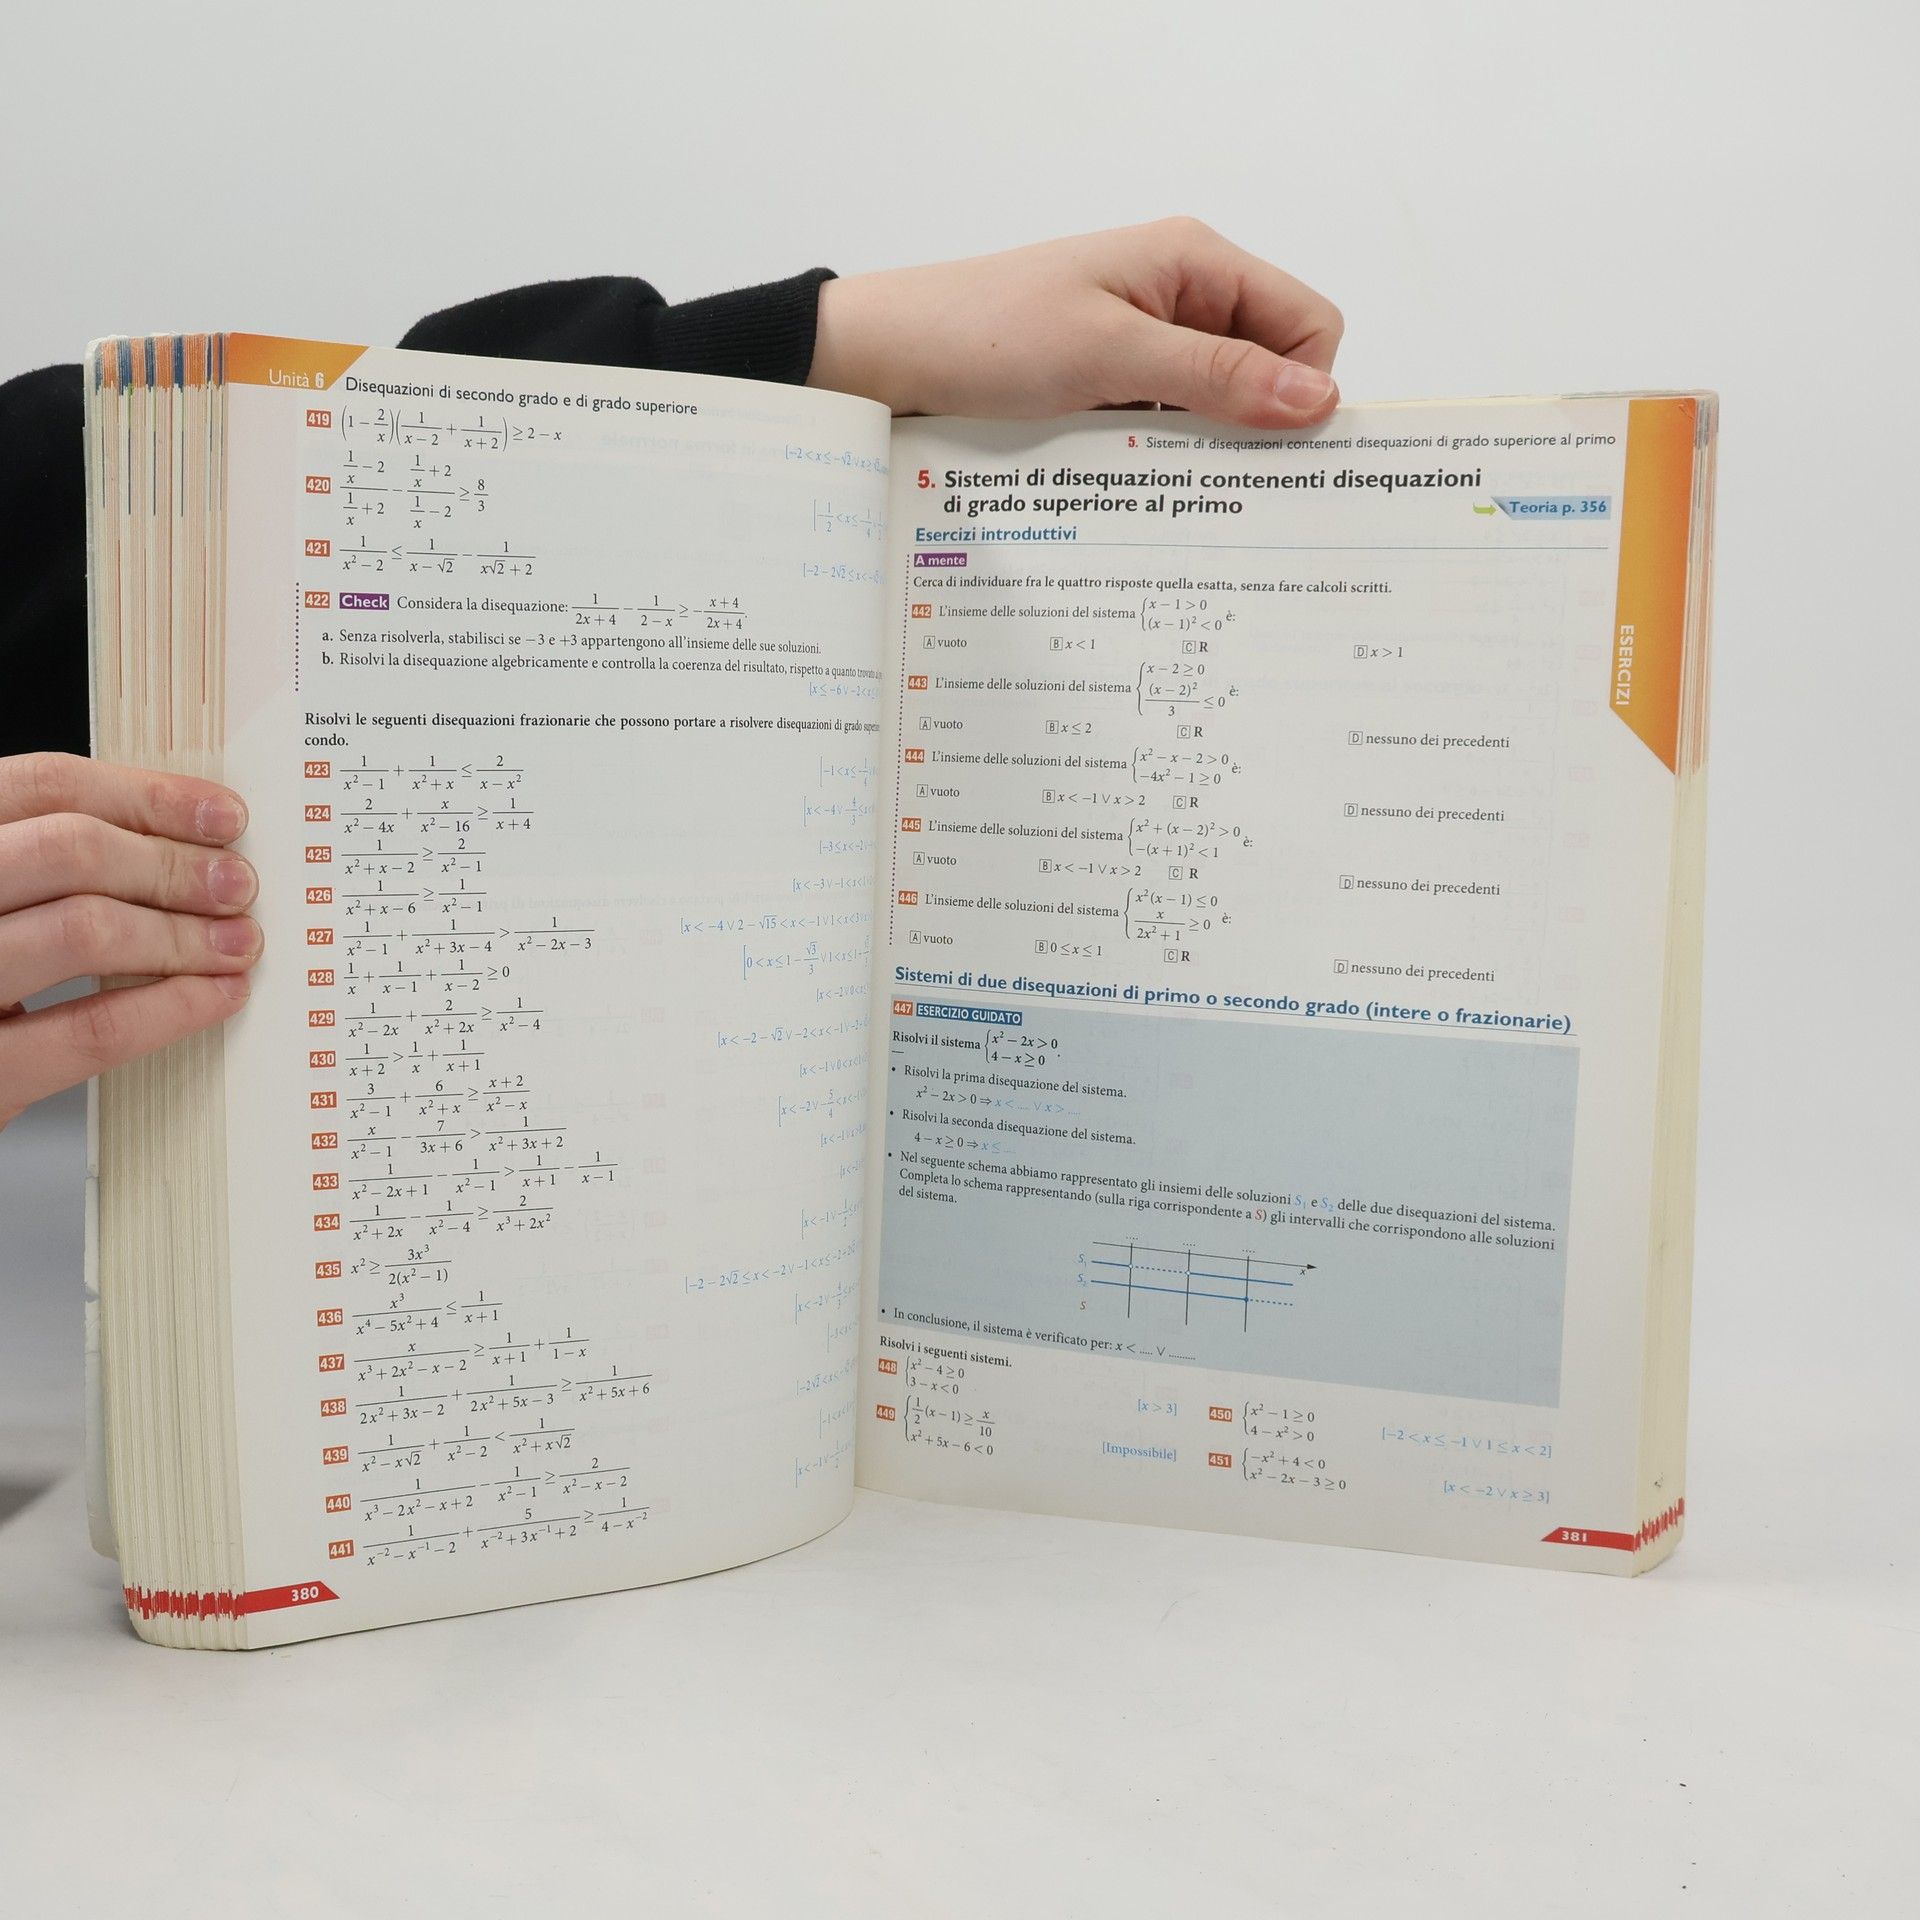 Unità 6 Disequazioni di secondo grado e di grado superiore
419 (1 − 2/x)(1/(x − 2) + 1/(x + 2)) ≥ 2 − x
420 (1/x − 2)/(1/x + 2) − (1/x + 2)/(1/x − 2) ≥ 8/3
421 1/(x² − 2) ≤ 1/(x − √2) − 1/(x√2 + 2)
422 Check Considera la disequazione: 1/(2x + 4) − 1/(2 − x) ≥ − (x + 4)/(2x + 4).
a. Senza risolverla, stabilisci se −3 e +3 appartengono all'insieme delle sue soluzioni.
b. Risolvi la disequazione algebricamente e controlla la coerenza del risultato, rispetto a quanto
Risolvi le seguenti disequazioni frazionarie che possono portare a risolvere disequazioni di grado
condo.
423 1/(x² − 1) + 1/(x² + x) ≤ 2/(x − x²)
424 2/(x² − 4x) + x/(x² − 16) ≥ 1/(x + 4)
425 1/(x² + x − 2) ≥ 2/(x² − 1)
426 1/(x² + x − 6) ≥ 1/(x² − 1)
427 1/(x² − 1) + 1/(x² + 3x − 4) > 1/(x² − 2x − 3)
428 1/x + 1/(x − 1) + 1/(x − 2) ≥ 0
429 1/(x² − 2x) + 2/(x² + 2x) ≥ 1/(x² − 4)
430 1/(x + 2) > 1/x + 1/(x + 1)
431 3/(x² − 1) + 6/(x² + x) ≥ (x + 2)/(x² − x)
432 x/(x² − 1) − 7/(3x + 6) > 1/(x² + 3x + 2)
433 1/(x² − 2x + 1) − 1/(x² − 1) > 1/(x + 1) − 1/(x − 1)
434 1/(x² + 2x) − 1/(x² − 4) ≥ 2/(x³ + 2x²)
435 x² ≥ 3x³/(2(x² − 1))
436 x³/(x⁴ − 5x² + 4) ≤ 1/(x + 1)
437 x/(x³ + 2x² − x − 2) ≥ 1/(x + 1) + 1/(1 − x)
438 1/(2x² + 3x − 2) + 1/(2x² + 5x − 3) ≥ 1/(x² + 5x + 6)
439 1/(x² − x√2) + 1/(x² − 2) < 1/(x² + x√2)
440 1/(x³ − 2x² − x + 2) − 1/(x² − 1) ≥ 2/(x² − x − 2)
441 1/(x⁻² − x⁻¹ − 2) + 5/(x⁻² + 3x⁻¹ + 2) ≥ 1/(4 − x⁻²)
380
5. Sistemi di disequazioni contenenti disequazioni di grado superiore al primo
5. Sistemi di disequazioni contenenti disequazioni
di grado superiore al primo
Teoria p. 356
Esercizi introduttivi
A mente
Cerca di individuare fra le quattro risposte quella esatta, senza fare calcoli scritti.
442 L'insieme delle soluzioni del sistema { x − 1 > 0 ; (x − 1)² < 0 è:
A vuoto B x < 1 C R D x > 1
443 L'insieme delle soluzioni del sistema { x − 2 ≥ 0 ; (x − 2)²/3 ≤ 0 è:
A vuoto B x ≤ 2 C R D nessuno dei precedenti
444 L'insieme delle soluzioni del sistema { x² − x − 2 > 0 ; −4x² − 1 ≥ 0 è:
A vuoto B x < −1 ∨ x > 2 C R D nessuno dei precedenti
445 L'insieme delle soluzioni del sistema { x² + (x − 2)² > 0 ; −(x + 1)² < 1 è:
A vuoto B x < −1 ∨ x > 2 C R D nessuno dei precedenti
446 L'insieme delle soluzioni del sistema { x²(x − 1) ≤ 0 ; x/(2x² + 1) ≥ 0 è:
A vuoto B 0 ≤ x ≤ 1 C R D nessuno dei precedenti
Sistemi di due disequazioni di primo o secondo grado (intere o frazionarie)
447 ESERCIZIO GUIDATO
Risolvi il sistema { x² − 2x > 0 ; 4 − x ≥ 0 .
• Risolvi la prima disequazione del sistema.
x² − 2x > 0 ⇒ x < .... ∨ x > ....
• Risolvi la seconda disequazione del sistema.
4 − x ≥ 0 ⇒ x ≤ ....
• Nel seguente schema abbiamo rappresentato gli insiemi delle soluzioni S₁ e S₂ delle due disequazioni del sistema.
Completa lo schema rappresentando (sulla riga corrispondente a S) gli intervalli che corrispondono alle soluzioni
del sistema.
.... .... ....
x
S₁
S₂
S
• In conclusione, il sistema è verificato per: x < ..... ∨ ..........
Risolvi i seguenti sistemi.
448 { x² − 4 ≥ 0 ; 3 − x < 0 [x > 3]
449 { 1/2(x − 1) ≥ x/10 ; x² + 5x − 6 < 0 [Impossibile]
450 { x² − 1 ≥ 0 ; 4 − x² > 0 [−2 < x ≤ −1 ∨ 1 ≤ x < 2]
451 { −x² + 4 < 0 ; x² − 2x − 3 ≥ 0 [x < −2 ∨ x ≥ 3]
ESERCIZI
381